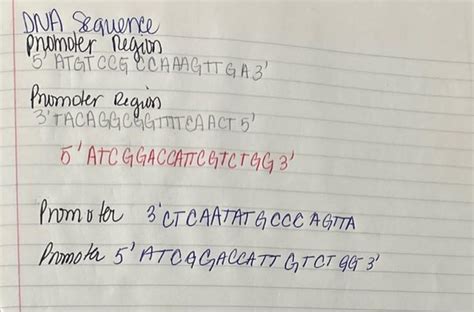 DNA Sequence
Promoter Region
5' ATGTCCG CCAAAGTTGA3'
Promoter Region
3'TACAGGCGGTTTCAACT 5'
5' ATCGGACCATTCGTCTGG 3'
Promoter 3'CTCAATATGCCCAGTTA
Promoter 5' ATCGGACCATT GTCTGG 3'